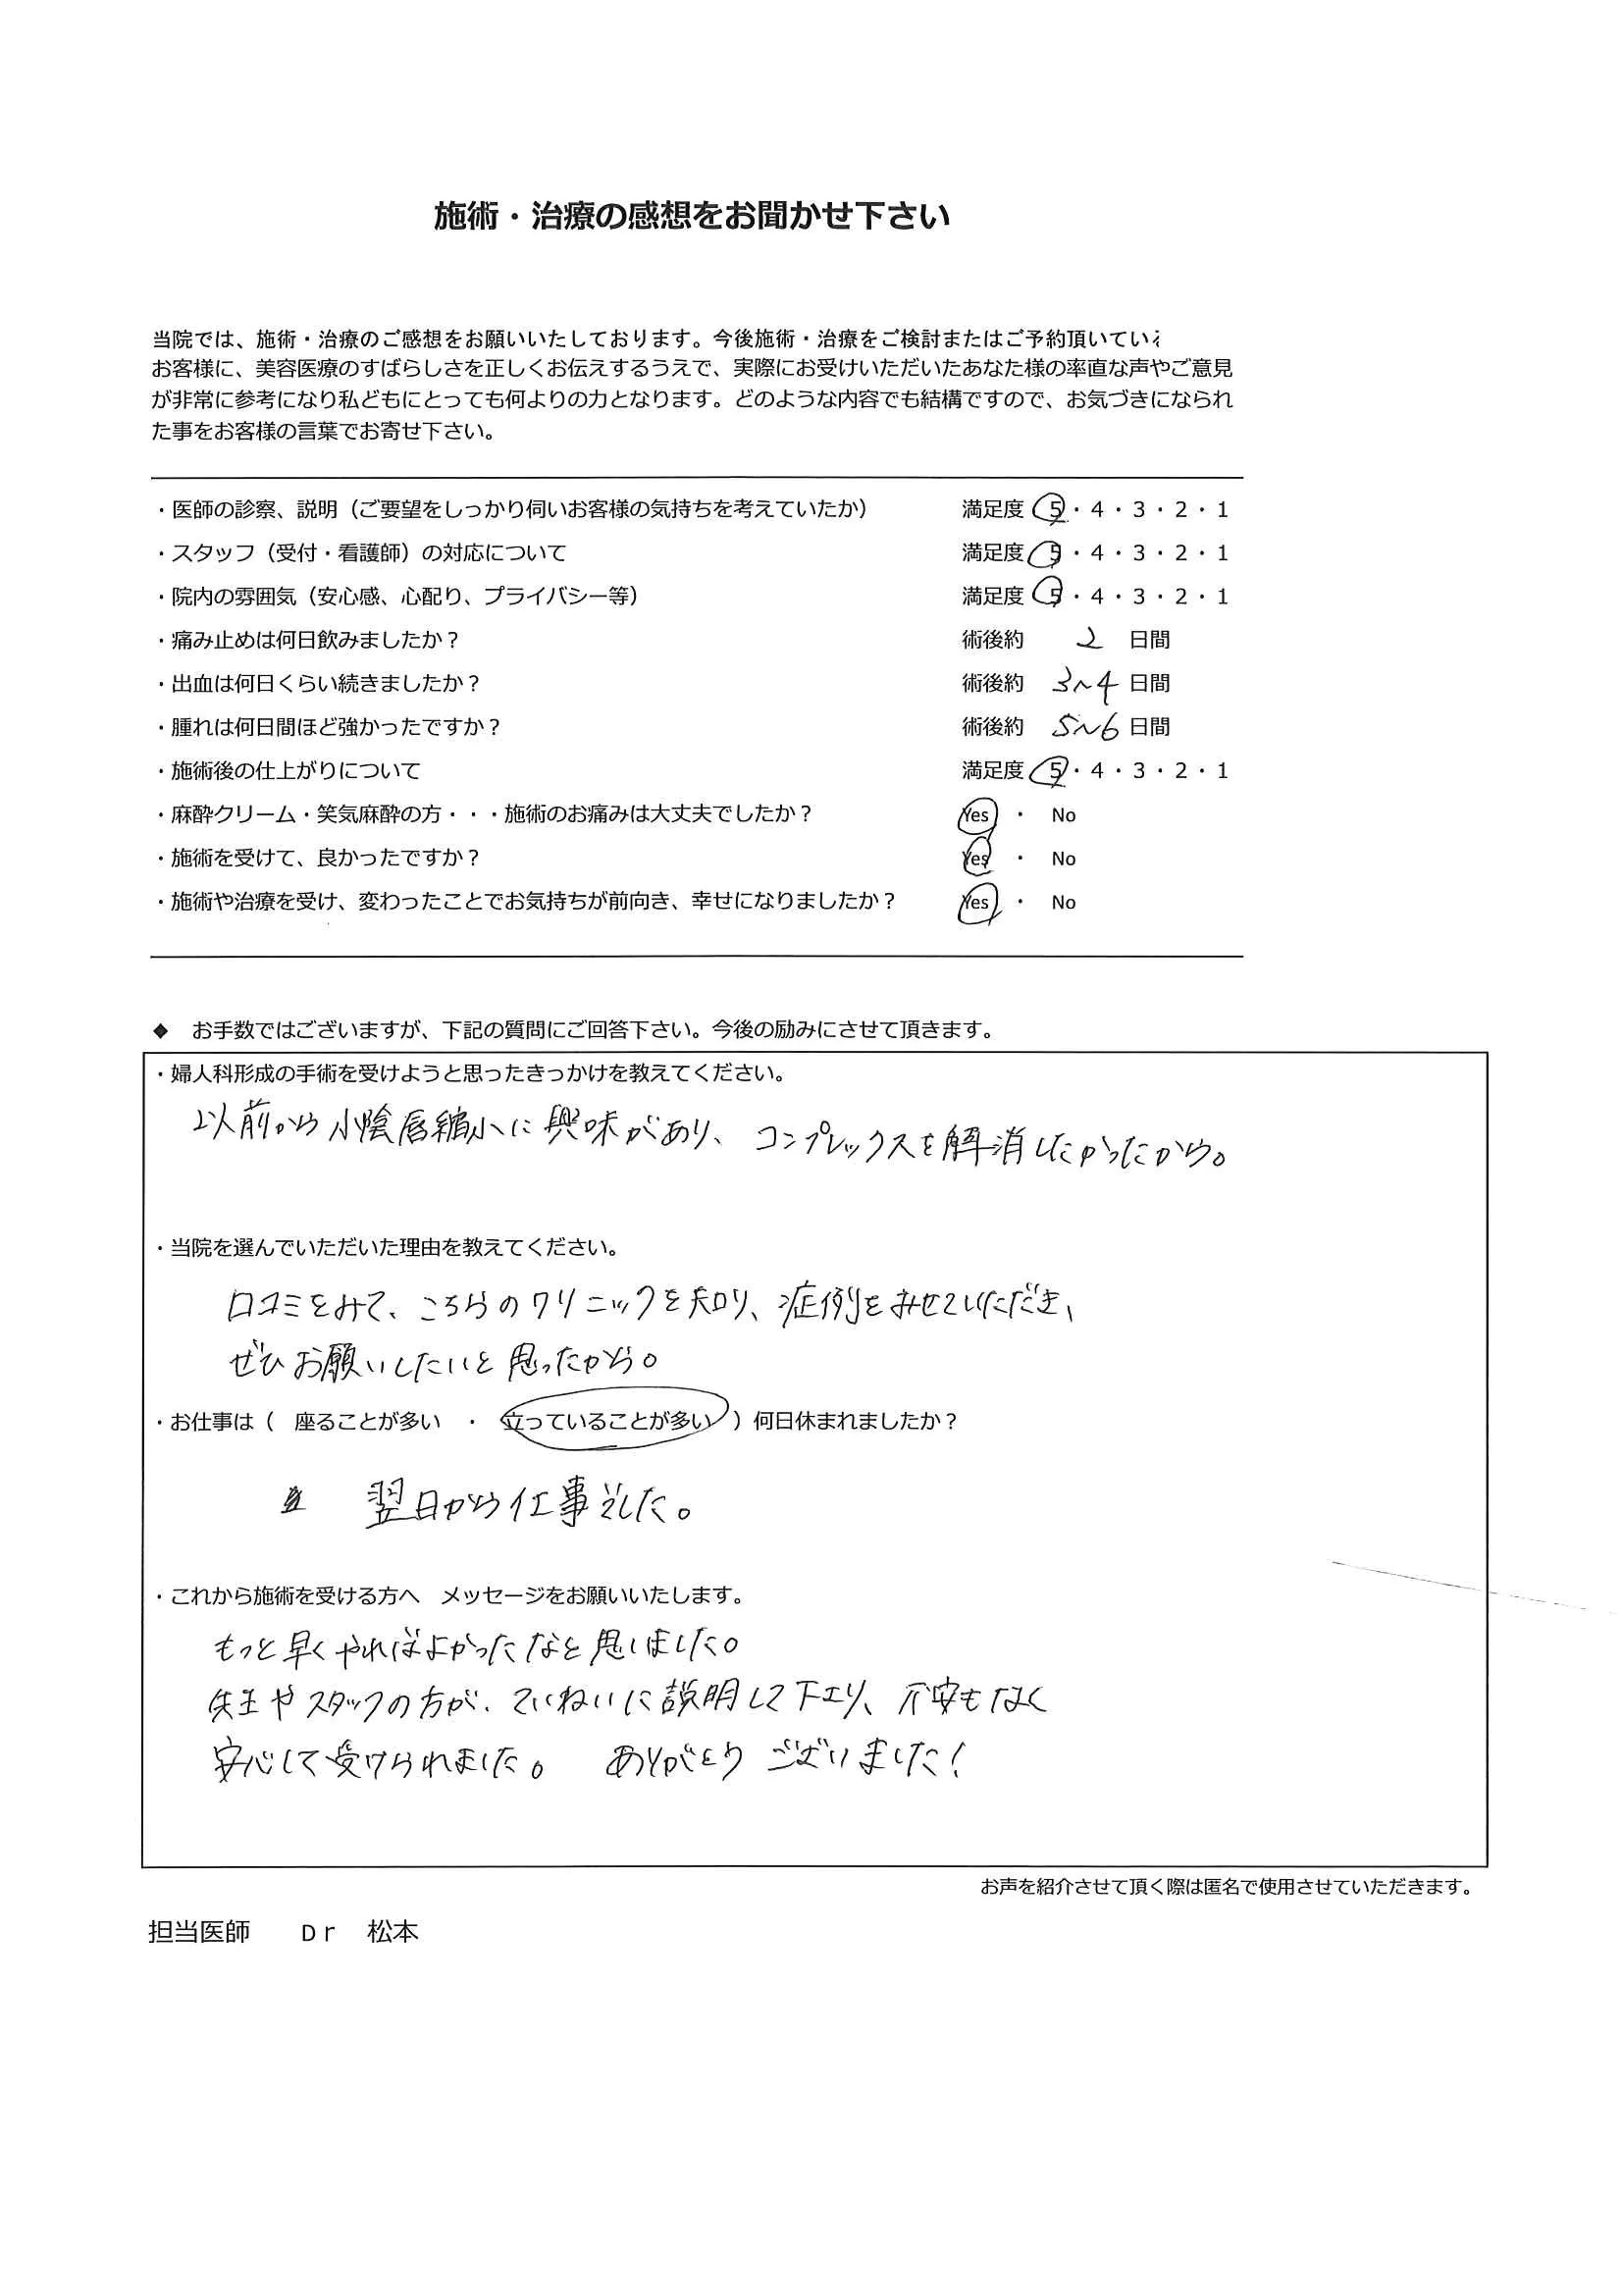 施術・治療の感想をお聞かせ下さい
当院では、施術・治療のご感想をお願いいたしております。今後施術・治療をご検討またはご予約頂いている
お客様に、美容医療のすばらしさを正しくお伝えするうえで、実際にお受けいただいたあなた様の率直な声やご意見
が非常に参考になり私どもにとっても何よりの力となります。どのような内容でも結構ですので、お気づきになられ
た事をお客様の言葉でお寄せ下さい。
・医師の診察、説明（ご要望をしっかり伺いお客様の気持ちを考えていたか） 満足度 5・4・3・2・1
・スタッフ（受付・看護師）の対応について 満足度 5・4・3・2・1
・院内の雰囲気（安心感、心配り、プライバシー等） 満足度 5・4・3・2・1
・痛み止めは何日飲みましたか？ 術後約 2 日間
・出血は何日くらい続きましたか？ 術後約 3~4 日間
・腫れは何日間ほど強かったですか？ 術後約 5~6 日間
・施術後の仕上がりについて 満足度 5・4・3・2・1
・麻酔クリーム・笑気麻酔の方・・・施術のお痛みは大丈夫でしたか？ Yes ・ No
・施術を受けて、良かったですか？ Yes ・ No
・施術や治療を受け、変わったことでお気持ちが前向き、幸せになりましたか？ Yes ・ No
◆ お手数ではございますが、下記の質問にご回答下さい。今後の励みにさせて頂きます。
・婦人科形成の手術を受けようと思ったきっかけを教えてください。
以前から小陰唇縮小に興味があり、コンプレックスを解消したかったから。
・当院を選んでいただいた理由を教えてください。
口コミをみて、こちらのクリニックを知り、症例をみせていただき、
ぜひお願いしたいと思ったから。
・お仕事は（ 座ることが多い ・ 立っていることが多い ）何日休まれましたか？
翌日から仕事でした。
・これから施術を受ける方へ メッセージをお願いいたします。
もっと早くやればよかったなと思いました。
先生やスタッフの方が、ていねいに説明して下さり、不安もなく
安心して受けられました。 ありがとうございました！
お声を紹介させて頂く際は匿名で使用させていただきます。
担当医師 Dr 松本